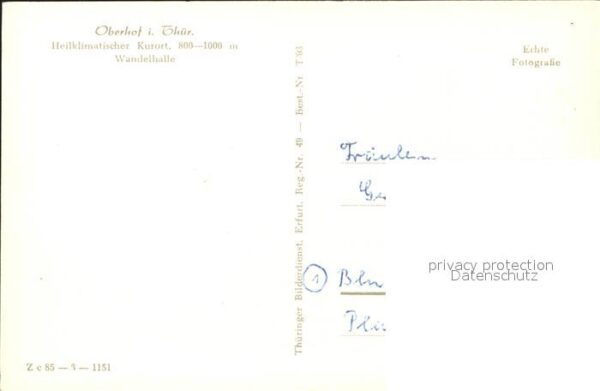 Oberhof i. Thür.
Heilklimatischer Kurort, 800—1000 m
Wandelhalle
Z c 85 — 3 — 1151
Thüringer Bilderdienst, Erfurt, Reg.-Nr. 49 — Best.-Nr T 93
Echte
Fotografie
Fräulein
Ge
① Bln
privacy protection
Datenschutz